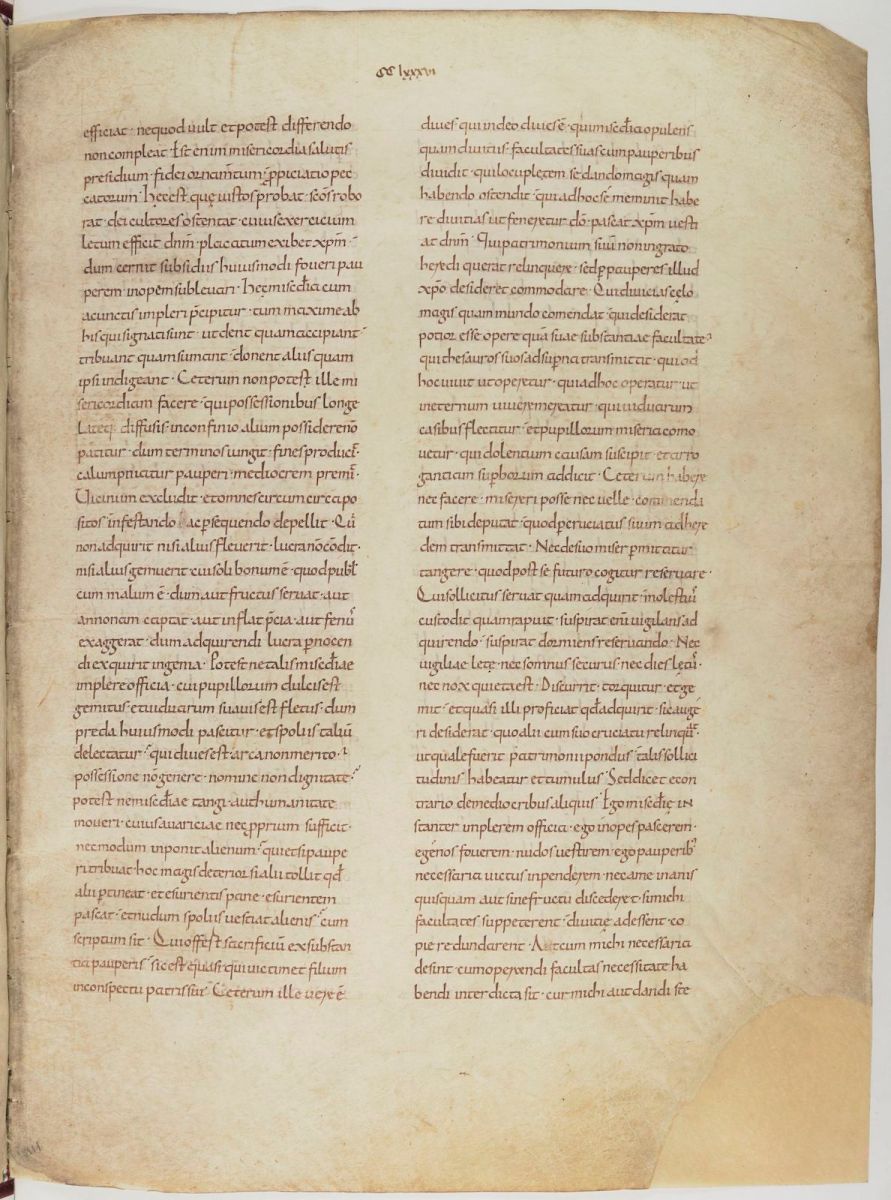 CC lxxxvi
efficiat · nequod uult et potest differendo
non compleat · Est enim misericordia salutis
presidium · fidei ornamtum · ꝓpiciatio pec
catorum · Hęc est quę iustos probat · scōs robo
rat · dei cultores ostentat · cuius exercicium
letum efficit dnm̄ · placatum exibet xp̄m ·
dum cernit subsidiis huiusmodi foueri pau
perem · inopem subleuari · Hęc misc̄dia cum
a cunctis impleri p̄cipitur · tum maxime ab
his qui signati sunt · ut dent quam accipiant ·
tribuant quam sumant · donent aliis quam
ipsi indigeant · Ceterum non potest ille mi
sericordiam facere · qui possessionibus longe
Lateq; diffusis · in confinio alium possidere nō
patitur · dum terminos iungit · fines producit ·
calumpniatur pauperi · mediocrem premit ·
Uicinum excludit · et omnes circum circa po
sitos infestando ac ꝑsequendo depellit · Qui
non adquirit nisi alius fleuerit · lucra nō cōdit ·
nisi alius gemuerit cui soli bonum ē · quod publi
cum malum ē · dum aut fructus seruat · aut
annonam captat · aut inflat p̄cia · aut fenus
exaggerat · dum adquirendi lucra ꝑ nocen
di exquirit ingenia · Potest ne talis misc̄diae
implere officia · cui pupillorum dulcis est
gemitus · et uiduarum suauis est fletus · dum
preda huiusmodi pascitur · et spoliis taliū
delectatur · qui diues est arca non merito ·
possessione nō genere · nomine non dignitate ·
potest ne misc̄diae tangi · aut humanitate
moueri · cuius auariciae nec ꝓprium sufficit ·
nec modum inponit alienum · qui etsi paupe
ri tribuat · hoc magis deterior si alii tollit qd̄
alii ꝑtineat · et esurientis pane · esurientem
pascat · et nudum spoliis uestiat alienis · cum
scriptum sit · Qui offert sacrificiū ex substan
tia pauperis · sic est quasi qui uictimet filium
in conspectu patris sui · Ceterum ille uere ē
diues qui in deo diues ē · qui misc̄dia opulens
quam diuitiis · facultates suas cum pauperibus
diuidit · qui locupletem se dando magis quam
habendo ostendit · qui ad hoc se meminit habe
re diuitias ut feneretur dō · pascat xp̄m uesti
at dnm̄ · Qui patrimonium suū non ingrato
heredi querat relinquere · sed ꝑ pauperes illud
xp̄o desideret commodare · Qui diuicias cęlo
magis quam mundo comendat · qui desiderat
potior esse opere quā suae substantiae facultate ·
qui thesauros suos ad suꝑna transmittit · qui ad
hoc uiuit ut operetur · qui ad hoc operatur ut
in eternum uiuere mereatur · qui uiduarum
casibus flectitur · et pupillorum miseria como
uetur · qui dolentum causam suscipit · et arro
gantiam suꝑborum addicit · Ceterum habere
nec facere · misereri posse nec uelle · commenda
tum sibi deputat · quod ꝑ cruciatus suum ad here
dem transmittat · Nec de suo miser ꝑmittitur
tangere · quod post se futuro cogitur reseruare ·
Qui sollicitus seruat quam adquirit · molestius
custodit quam rapuit · suspirat enī uigilans ad
quirendo · suspirat dormiens reseruando · Nec
uigiliae letę · nec somnus securus · nec dies lętus ·
nec nox quieta est · Discurrit · torquitur · et ge
mit · et quasi illi proficiat qd̄ adquirit · sic auge
ri desiderat · quo alii cum suo cruciatu relinquat ·
ut quale fuerit patrimonii pondus · talis sollici
tudinis habeatur et cumulus · Sed dicet e con
trario de mediocribus aliquis · Ego misc̄dię in
stanter implerem officia · ego inopes pascerem ·
egenos fouerem · nudos uestirem · ego pauperibus
necessaria uictus inpenderem · nec a me inanis
quisquam aut sine fructu discederet · si michi
facultates suppeterent · diuitię adessent · co
pie redundarent · At cum michi necessaria
desint · cum operendi facultas necessitate ha
bendi interdicta sit · cur michi aut dandi ste